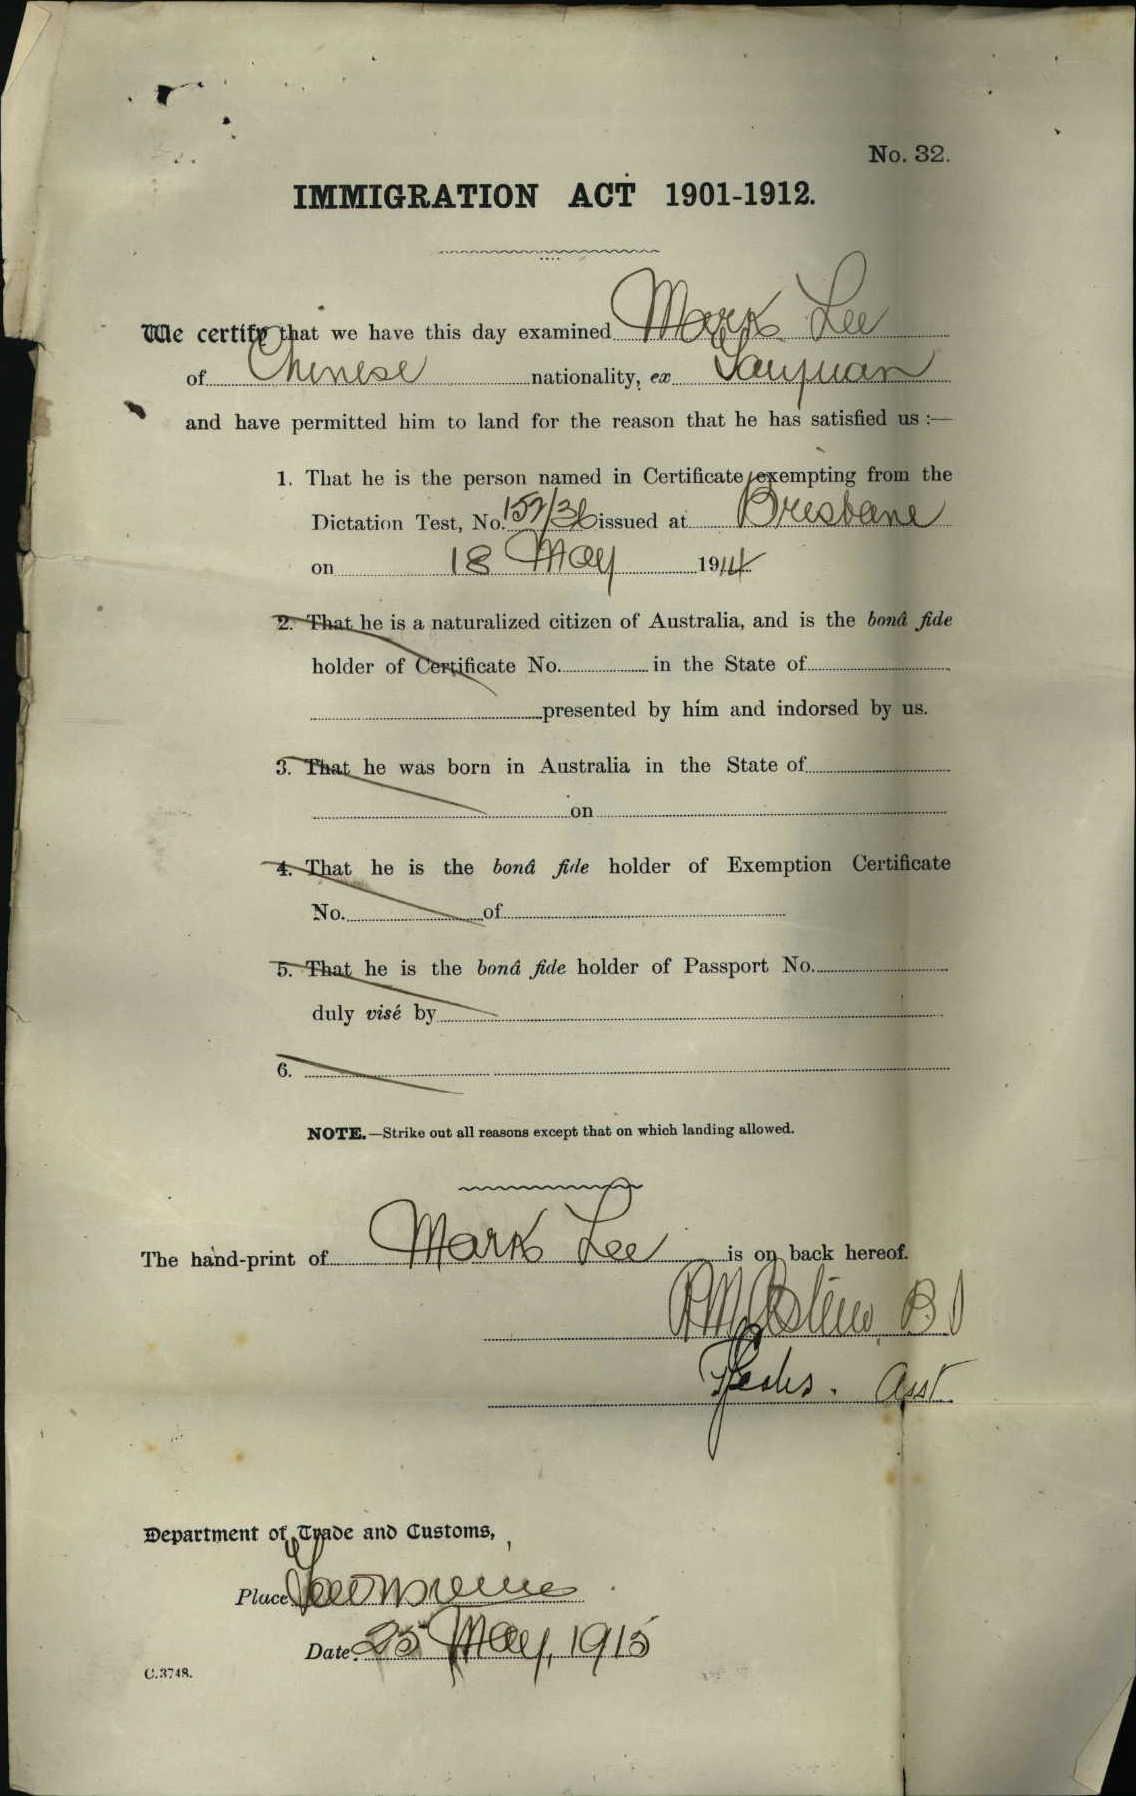 No. 32.
IMMIGRATION ACT 1901-1912.
We certify that we have this day examined Mark Lee
of Chinese nationality, ex Taiyuan
and have permitted him to land for the reason that he has satisfied us :—
1. That he is the person named in Certificate exempting from the
Dictation Test, No. 152/36 issued at Brisbane
on 18 May 1914
2. That he is a naturalized citizen of Australia, and is the bonâ fide
holder of Certificate No. in the State of
presented by him and indorsed by us.
3. That he was born in Australia in the State of
on
4. That he is the bonâ fide holder of Exemption Certificate
No. of
5. That he is the bonâ fide holder of Passport No.
duly visé by
6.
NOTE.—Strike out all reasons except that on which landing allowed.
The hand-print of Mark Lee is on back hereof.
Asst
Department of Trade and Customs,
Place Townsville
Date 25 May, 1915
C.3748.